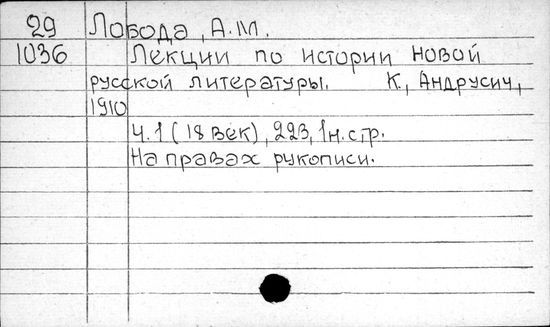 29 Лобода, А.М.
1036 Лекции по истории новой
русской литературы. К., Андрусич,
1910
Ч.1 (18 век), 223, 1н.стр.
На правах рукописи.